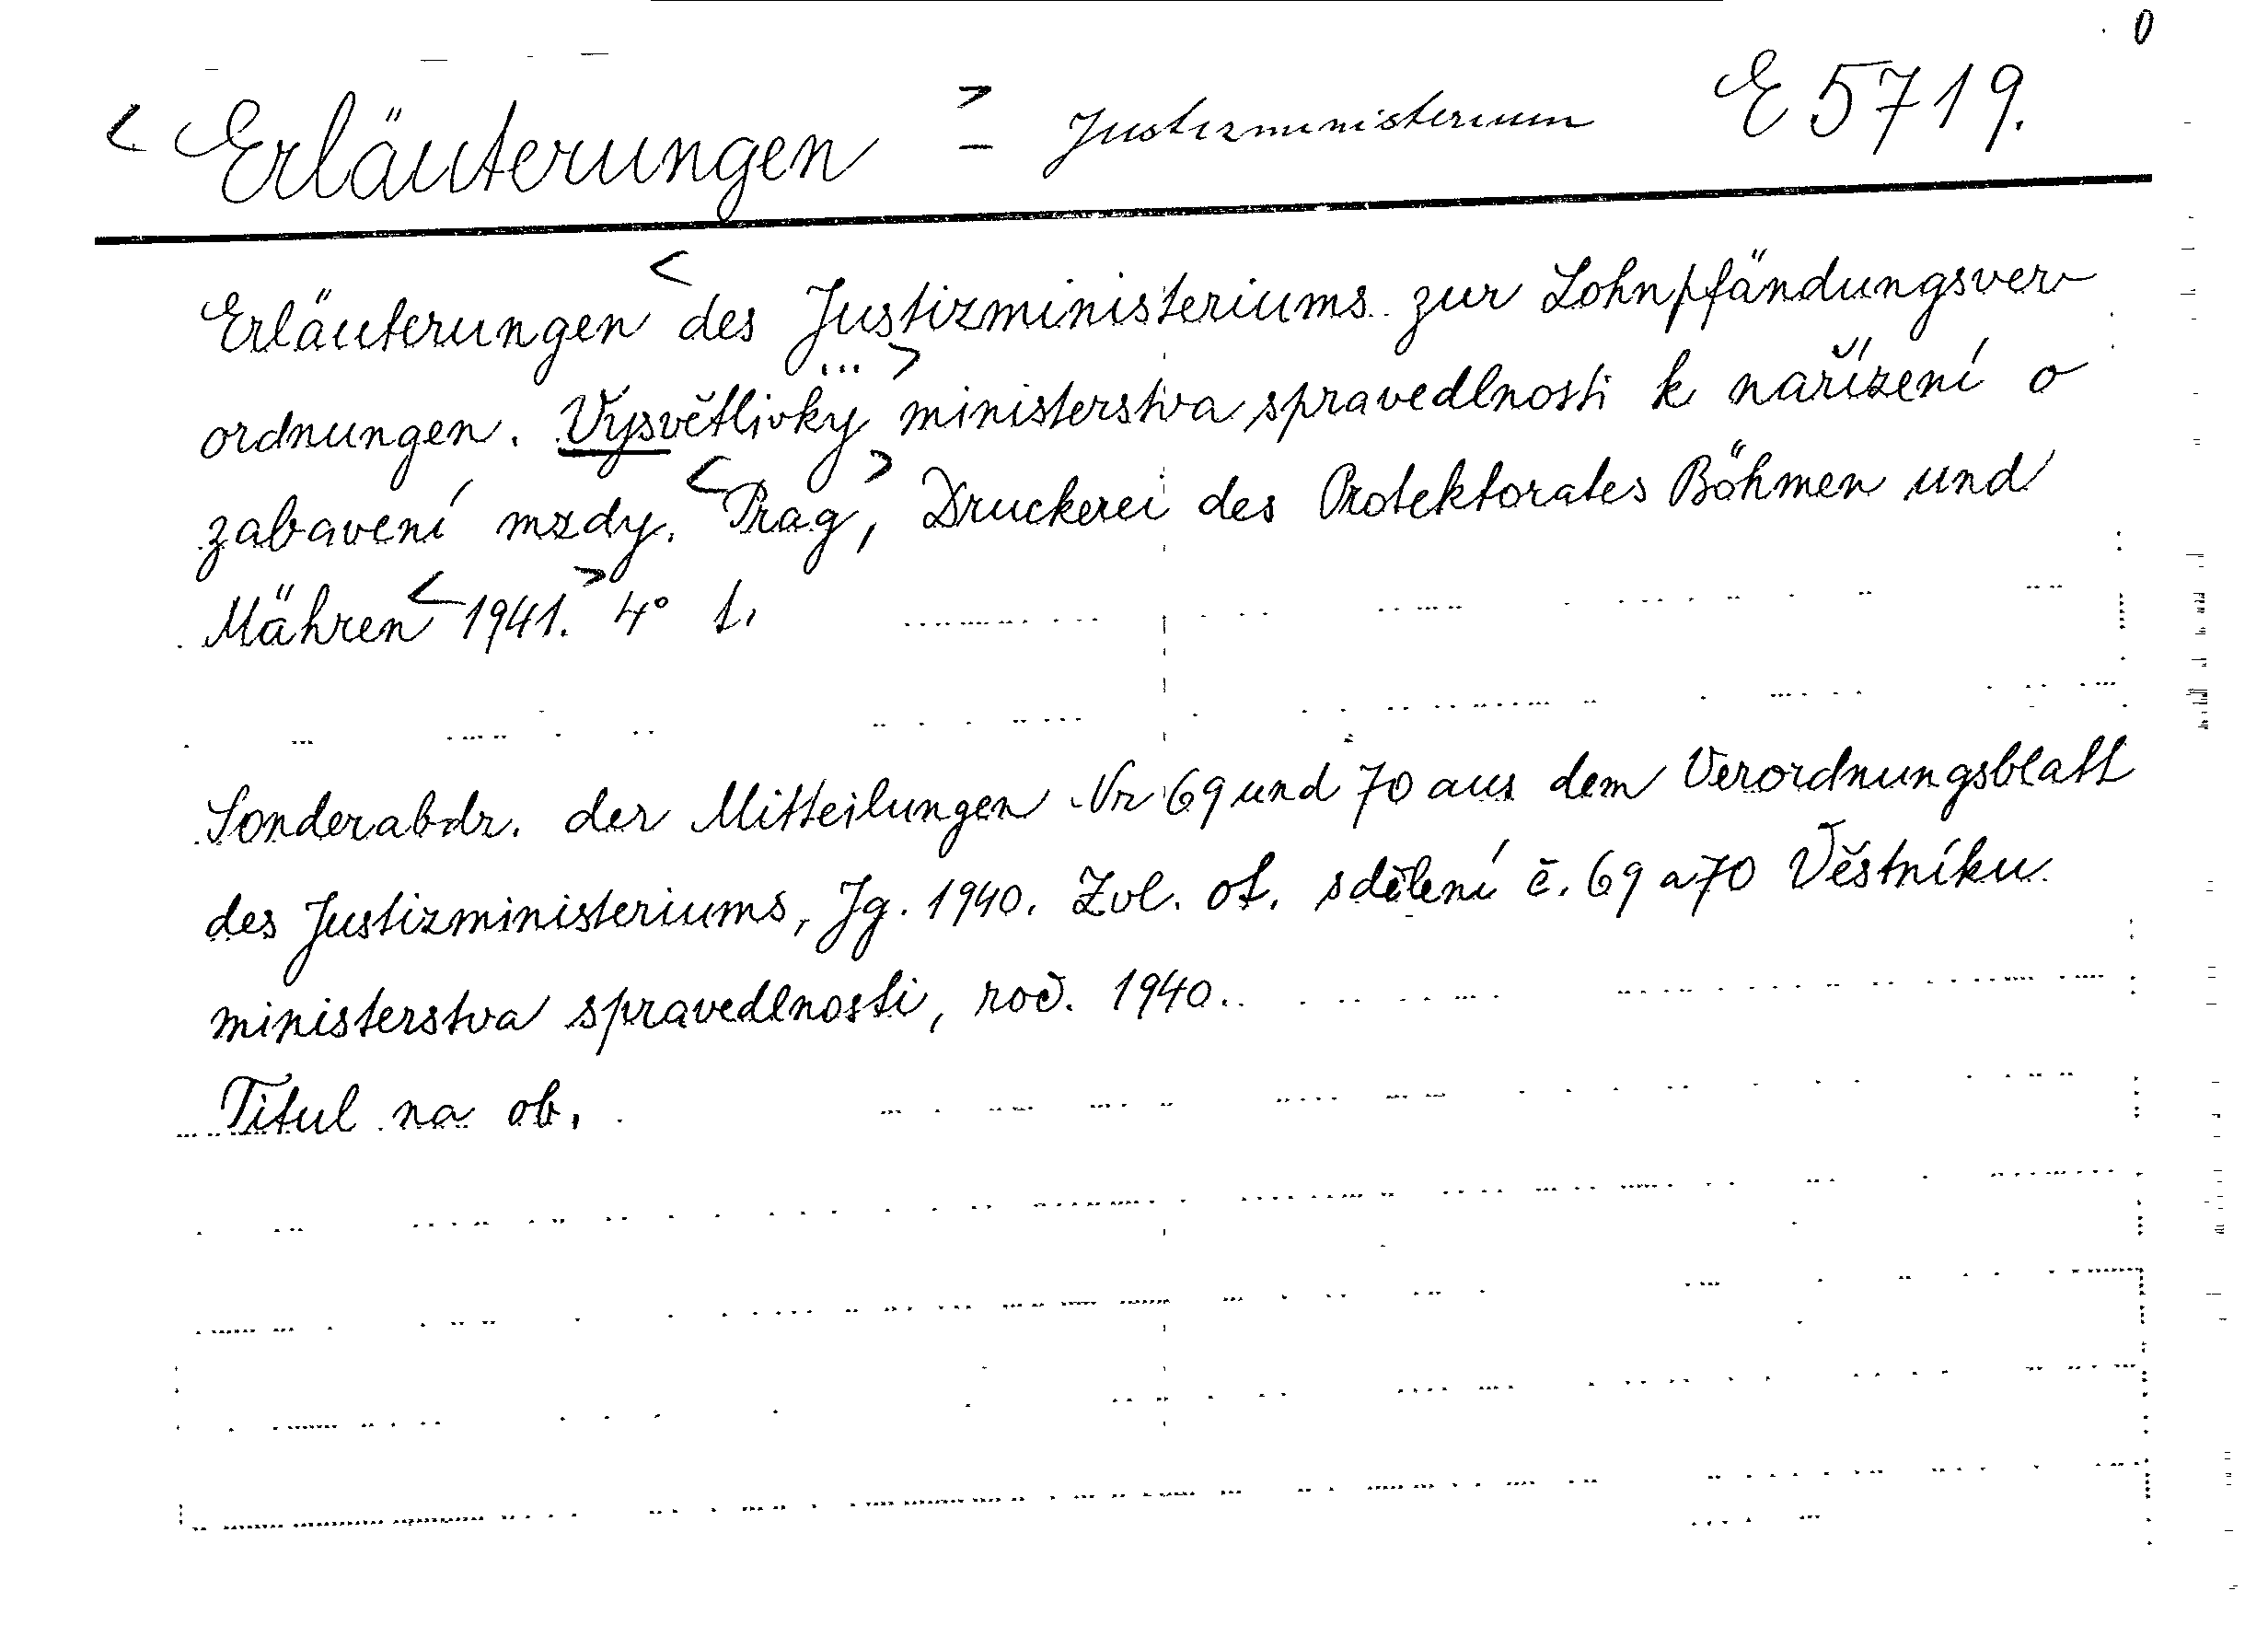 0
< Erläuterungen > – Justizministerium E 5719.
Erläuterungen < des Justizministeriums zur Lohnpfändungsver-
ordnungen. Vysvětlivky ... > ministerstva spravedlnosti k nařízení o
zabavení mzdy. < Prag, > Druckerei des Protektorates Böhmen und
Mähren < 1941. > 4° t.
Sonderabdr. der Mitteilungen Nr 69 und 70 aus dem Verordnungsblatt
des Justizministeriums, Jg. 1940. Zvl. ot. sdělení č. 69 a 70 Věstníku
ministerstva spravedlnosti, roč. 1940.
Titul na ob.